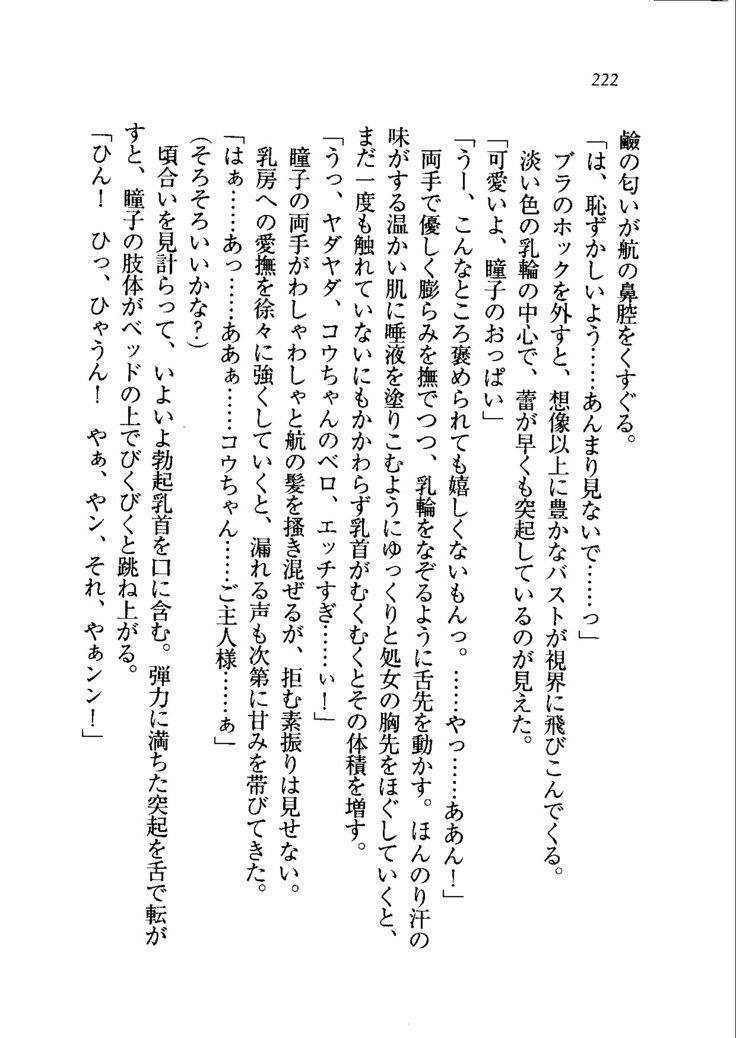 222
鹼の匂いが航の鼻腔をくすぐる。
「は、恥ずかしいよう……あんまり見ないで……っ」
ブラのホックを外すと、想像以上に豊かなバストが視界に飛びこんでくる。
淡い色の乳輪の中心で、蕾が早くも突起しているのが見えた。
「可愛いよ、瞳子のおっぱい」
「うー、こんなところ褒められても嬉しくないもんっ。……やっ……ああん！」
両手で優しく膨らみを撫でつつ、乳輪をなぞるように舌先を動かす。ほんのり汗の
味がする温かい肌に唾液を塗りこむようにゆっくりと処女の胸先をほぐしていくと、
まだ一度も触れていないにもかかわらず乳首がむくむくとその体積を増す。
「うっ、ヤダヤダ、コウちゃんのベロ、エッチすぎ……ぃ！」
瞳子の両手がわしゃわしゃと航の髪を掻き混ぜるが、拒む素振りは見せない。
乳房への愛撫を徐々に強くしていくと、漏れる声も次第に甘みを帯びてきた。
「はぁ……あっ……ああぁ……コウちゃん……ご主人様……ぁ」
(そろそろいいかな？)
頃合いを見計らって、いよいよ勃起乳首を口に含む。弾力に満ちた突起を舌で転が
すと、瞳子の肢体がベッドの上でびくびくと跳ね上がる。
「ひん！　ひっ、ひゃうん！　やぁ、やン、それ、やぁンン！」